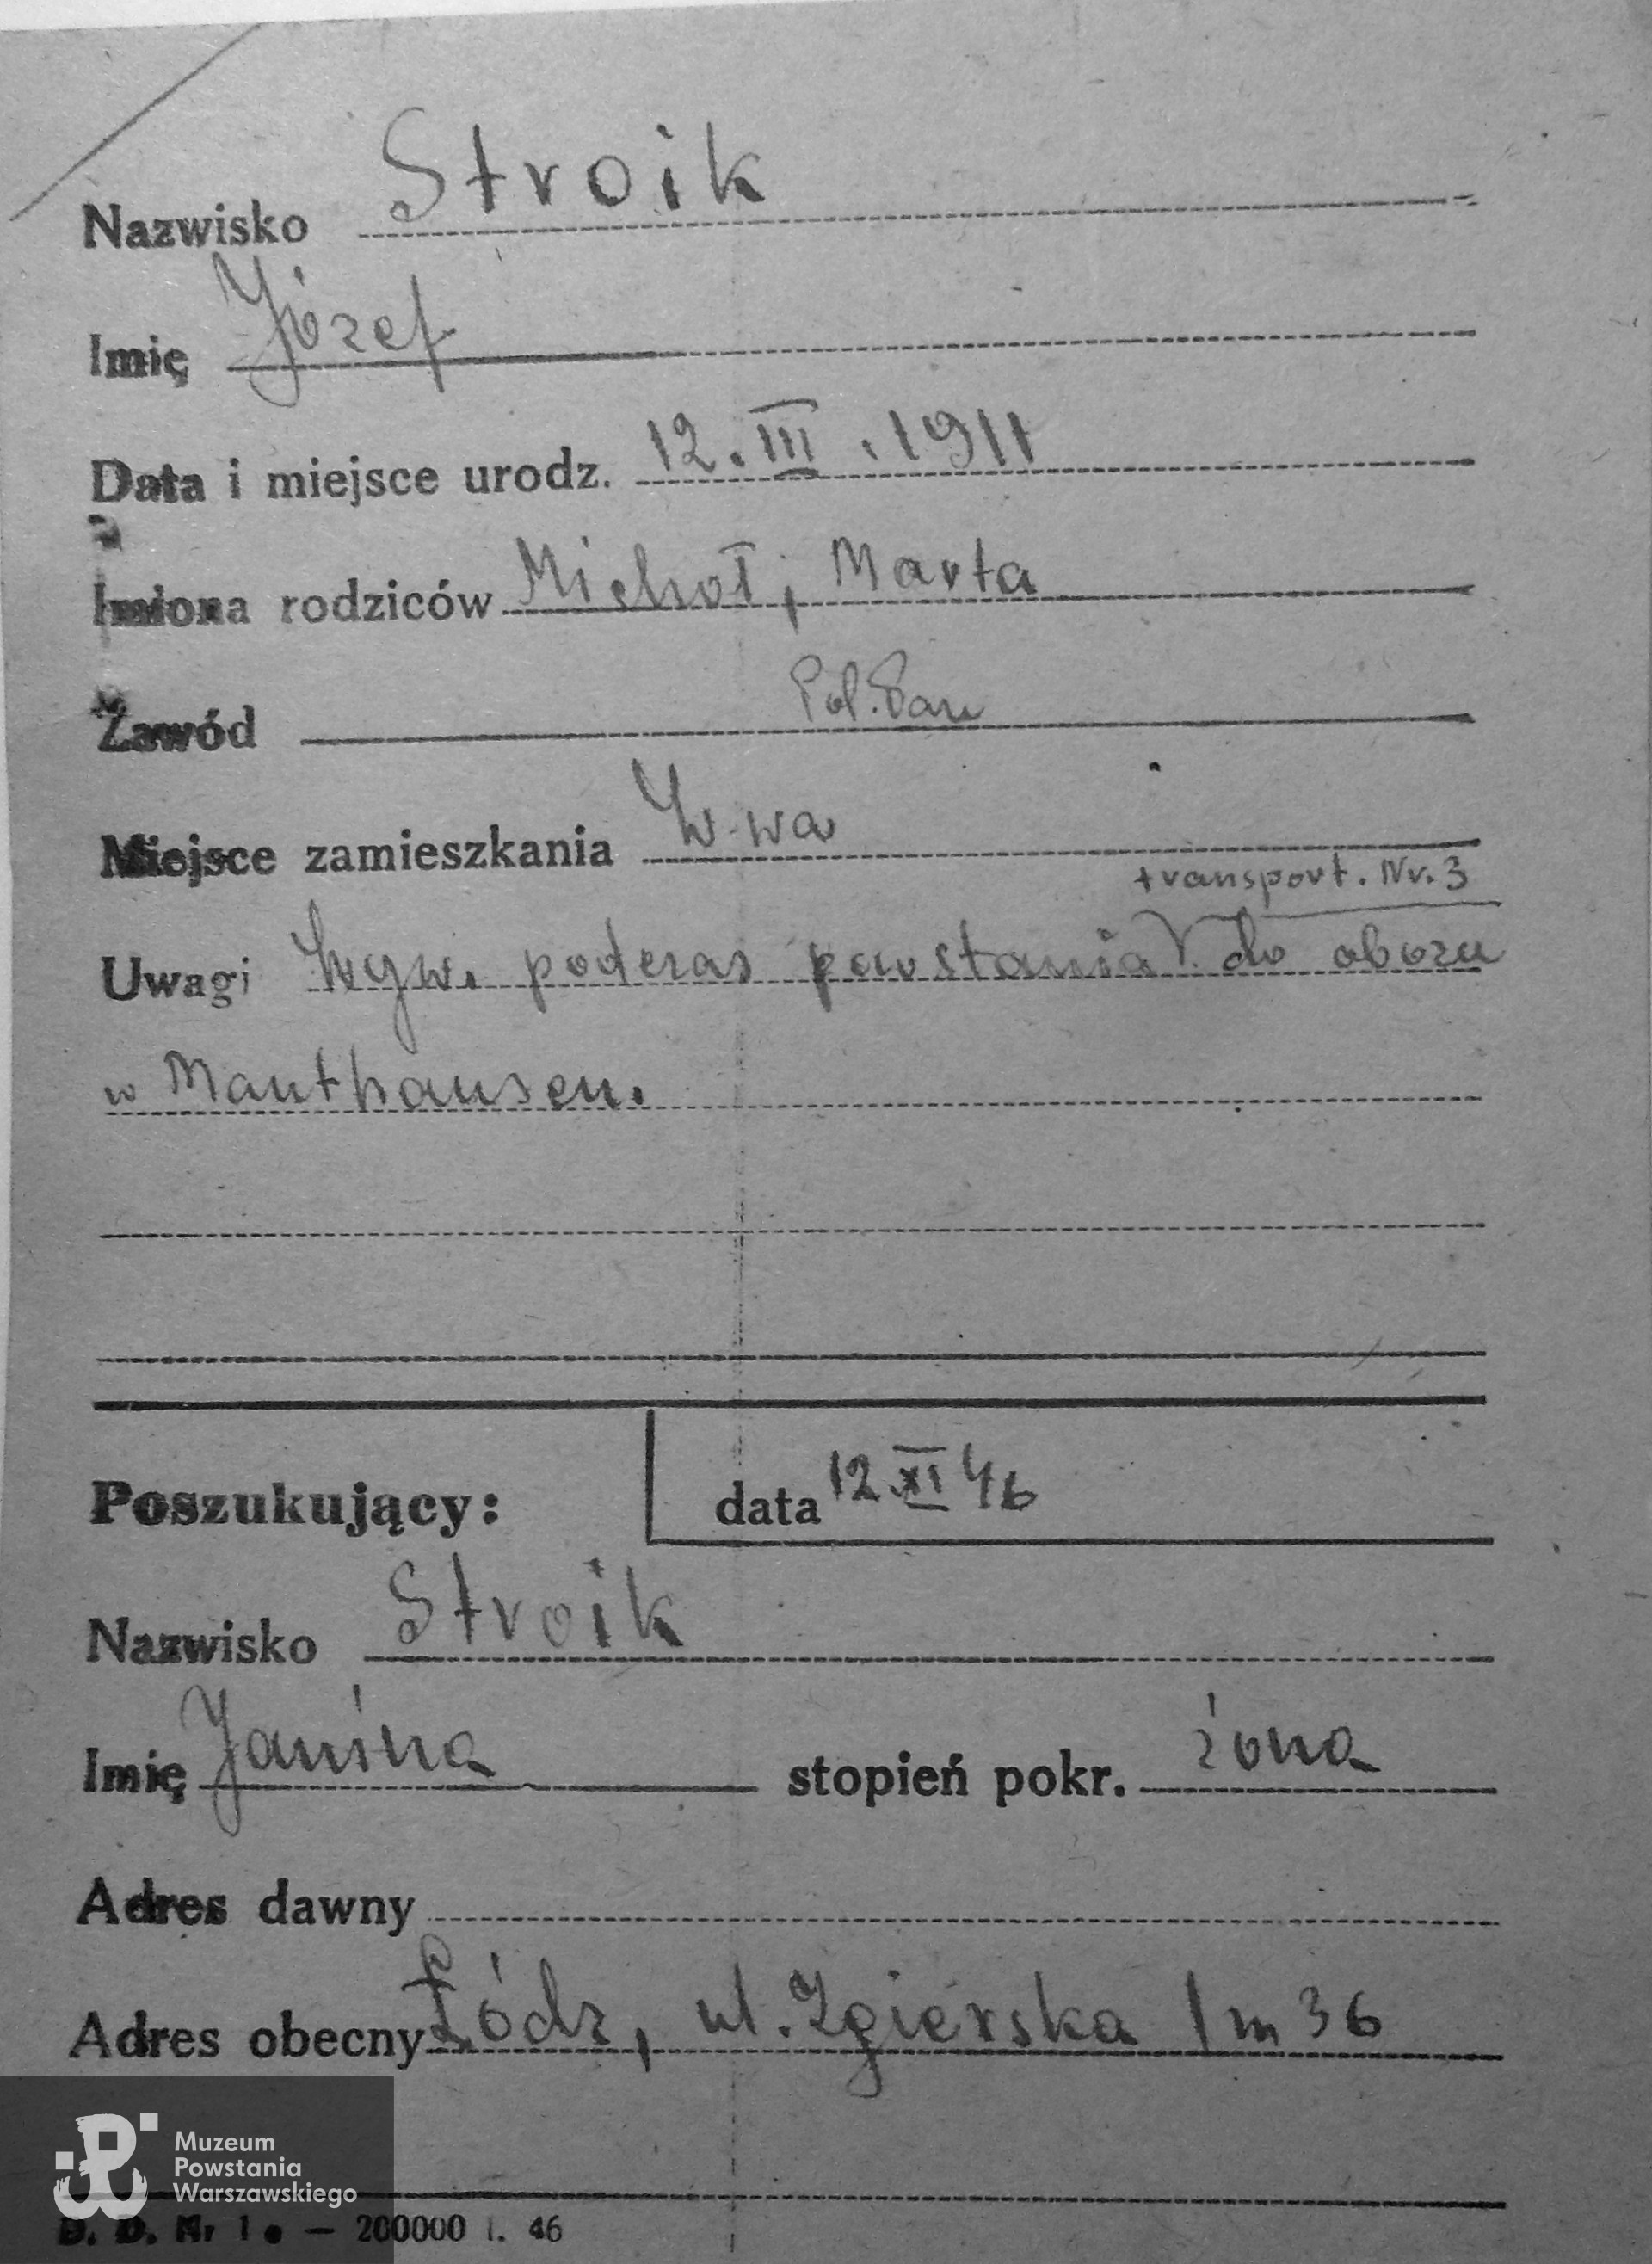 Nazwisko Stroik
Imię Józef
Data i miejsce urodz. 12.III.1911
Imiona rodziców Michał, Marta
Zawód
Miejsce zamieszkania W-wa
transport. Nr. 3
Uwagi Wyw. podczas powstania do obozu
w Manthausen.
Poszukujący: data 12.XI 46
Nazwisko Stroik
Imię Janina stopień pokr. żona
Adres dawny
Adres obecny Łódz, ul. Zgierska 1 m 36
Muzeum
Powstania
Warszawskiego
D. D. Nr 1 e — 200000 I. 46